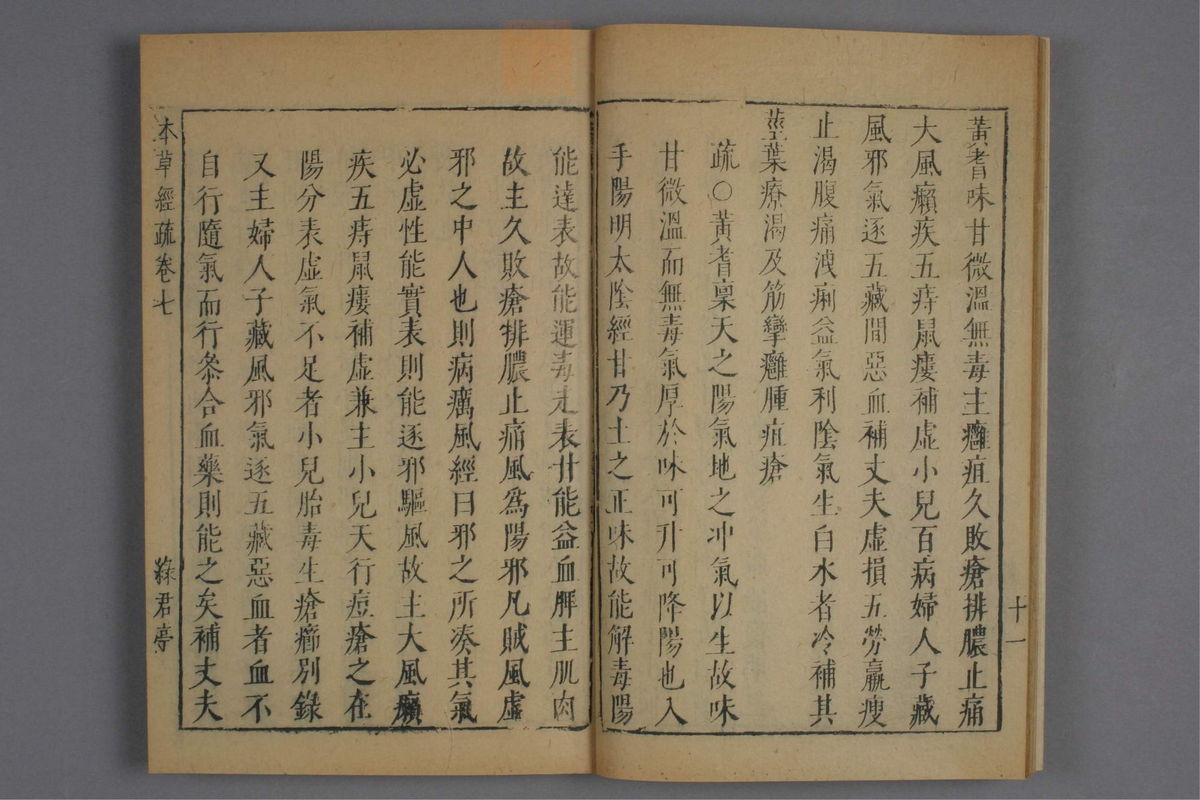 十一
黃耆味甘微溫無毒主癰疽久敗瘡排膿止痛
大風癩疾五痔鼠瘻補虛小兒百病婦人子藏
風邪氣逐五藏間惡血補丈夫虛損五勞羸瘦
止渴腹痛洩痢益氣利陰氣生白水者冷補其
莖葉療渴及筋攣癰腫疽瘡
疏○黃耆稟天之陽氣地之冲氣以生故味
甘微溫而無毒氣厚於味可升可降陽也入
手陽明太陰經甘乃土之正味故能解毒陽
能達表故能運毒走表甘能益血脾主肌肉
故主久敗瘡排膿止痛風為陽邪凡賊風虛
邪之中人也則病癘風經曰邪之所凑其氣
必虛性能實表則能逐邪驅風故主大風癩
疾五痔鼠瘻補虛兼主小兒天行痘瘡之在
陽分表虛氣不足者小兒胎毒生瘡癤別錄
又主婦人子藏風邪氣逐五藏惡血者血不
自行隨氣而行叅合血藥則能之矣補丈夫
本草經疏卷七
綠君亭